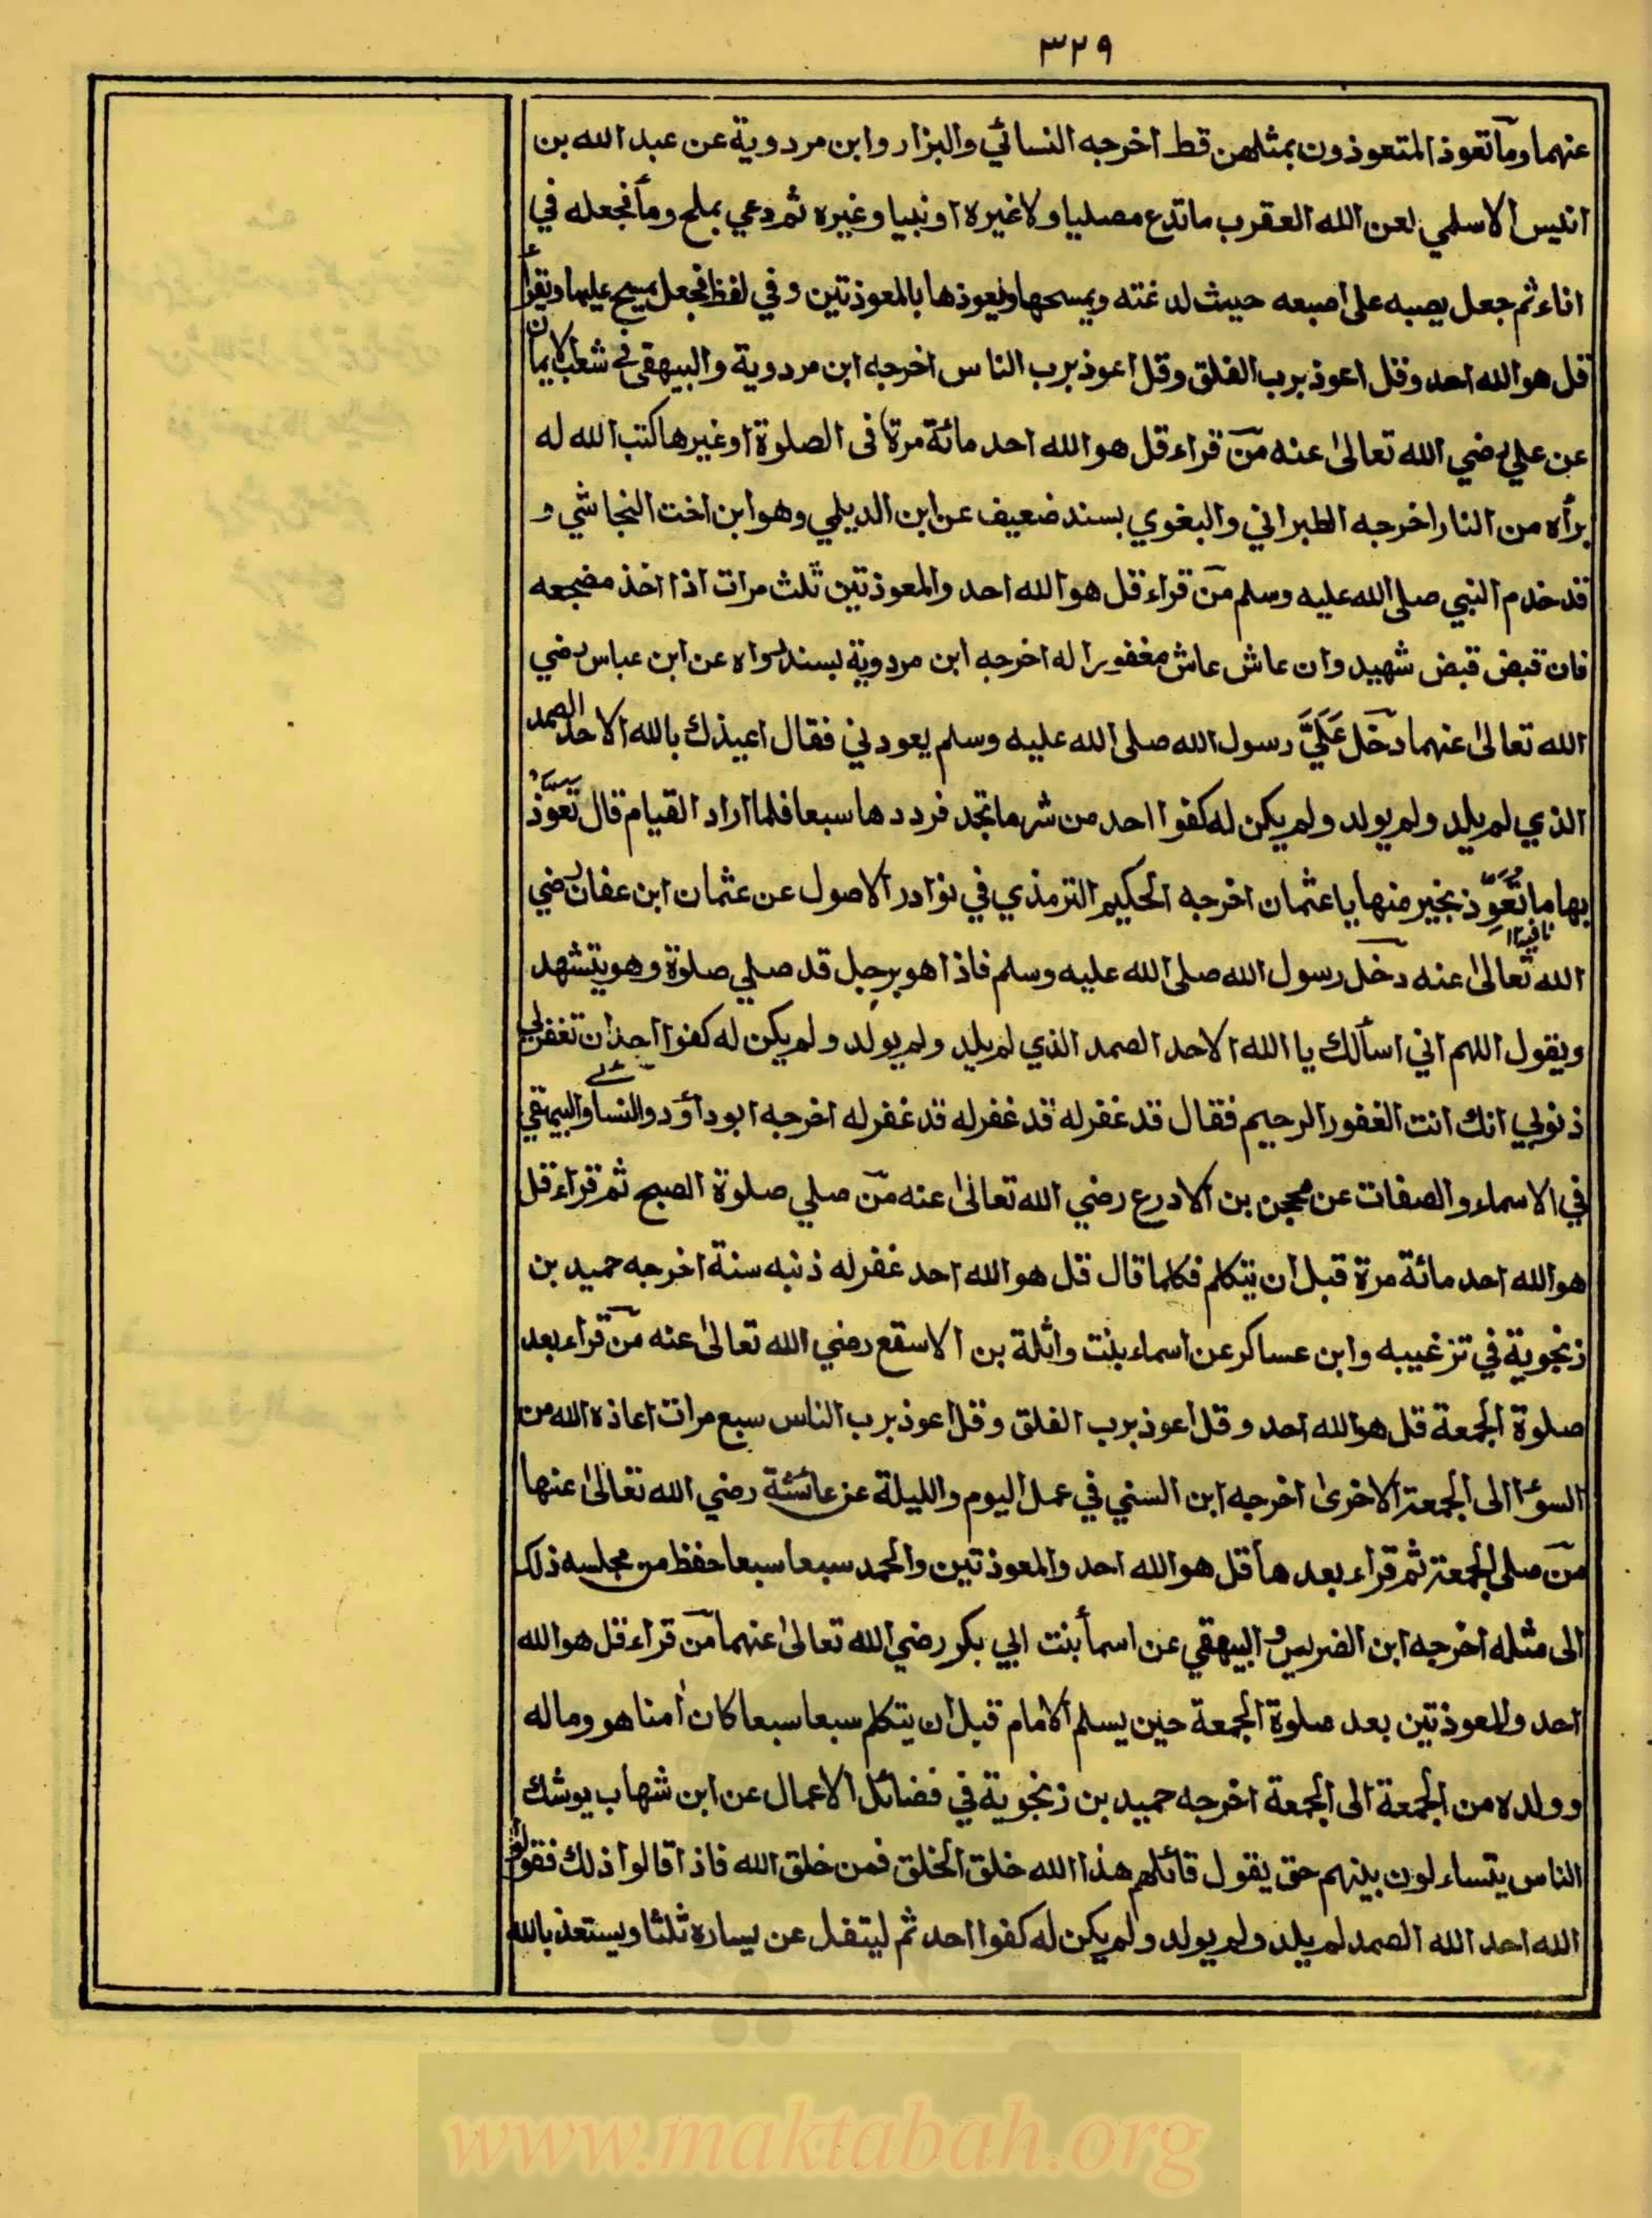 ٣٢٩
عنهما ومآ تعوذ المتعوذون بمثلهن قط اخرجه النسائي والبزار وابن مردوية عن عبد الله بن
انيس الاسلمي لعن الله العقرب ما تدع مصليا ولا غيره او نبيا وغيره ثم دعي بملح ومأ فجعله في
اناء ثم جعل يصبه على اصبعه حيث لدغته ويمسحها ويعوذها بالمعوذتين وفي لفظ فجعل يمسح عليها ويقرأ
قل هو الله احد وقل اعوذ برب الفلق وقل اعوذ برب الناس اخرجه ابن مردوية والبيهقي في شعب الايمان
عن علي رضي الله تعالىٰ عنه منٓ قراء قل هو الله احد مائة مرة في الصلوة او غيرها كتب الله له
برأه من النار اخرجه الطبراني والبغوي بسند ضعيف عن ابن الديلمي وهو ابن اخت النجاشي و
قد خدم النبي صلى الله عليه وسلم منٓ قراء قل هو الله احد والمعوذتين ثلث مرات اذا اخذ مضجعه
فان قبض قبض شهيد وان عاش عاش مغفورا له اخرجه ابن مردوية بسند رواه عن ابن عباس رضي
الله تعالىٰ عنهما دخل عَلَيَّ رسول الله صلى الله عليه وسلم يعودني فقال اعيذك بالله الاحد الصمد
الذي لم يلد ولم يولد ولم يكن له كفوا احد من شر ما تجد فرددها سبعا فلما اراد القيام قال تَعَوَّذ
بها ما تَعَوَّذ بخير منها يا عثمان اخرجه الحكيم الترمذي في نوادر الاصول عن عثمان ابن عفان رضي
الله تعالىٰ عنه دخل رسول الله صلى الله عليه وسلم فاذا هو برجل قد صلي صلوة وهو يتشهد
ويقول اللهم اني اسألك يا الله الاحد الصمد الذي لم يلد ولم يولد ولم يكن له كفوا احد ان تغفر لي
ذنوبي انك انت الغفور الرحيم فقال قد غفر له قد غفر له قد غفر له اخرجه ابو داؤد والنسائي والبيهقي
في الاسماء والصفات عن محجن بن الادرع رضي الله تعالىٰ عنه منٓ صلي صلوة الصبح ثم قراء قل
هو الله احد مائة مرة قبل ان يتكلم فكلما قال قل هو الله احد غفر له ذنبه سنة اخرجه حميد بن
زنجوية في تزغيبه وابن عساكر عن اسماء بنت واثلة بن الاسقع رضي الله تعالىٰ عنه منٓ قراء بعد
صلوة الجمعة قل هو الله احد وقل اعوذ برب الفلق وقل اعوذ برب الناس سبع مرات اعاذه الله من
السوء الى الجمعة الاخرىٰ اخرجه ابن السني في عمل اليوم والليلة عن عائشة رضي الله تعالىٰ عنها
منٓ صلى الجمعة ثم قراء بعدها قل هو الله احد والمعوذتين والحمد سبعا سبعا حفظ من مجلسه ذلك
الى مثله اخرجه ابن الضريس والبيهقي عن اسمأ بنت ابي بكر رضي الله تعالىٰ عنهما منٓ قراء قل هو الله
احد والمعوذتين بعد صلوة الجمعة حين يسلم الامام قبل ان يتكلم سبعا سبعا كان اٰمنا هو وماله
وولده من الجمعة الى الجمعة اخرجه حميد بن زنجوية في فضائل الاعمال عن ابن شهاب يوشك
الناس يتساءلون بينهم حتى يقول قائلهم هذا الله خلق الخلق فمن خلق الله فاذا قالوا ذلك فقولوا
الله احد الله الصمد لم يلد ولم يولد ولم يكن له كفوا احد ثم ليتفل عن يساره ثلثا ويستعذ بالله
www.maktabah.org